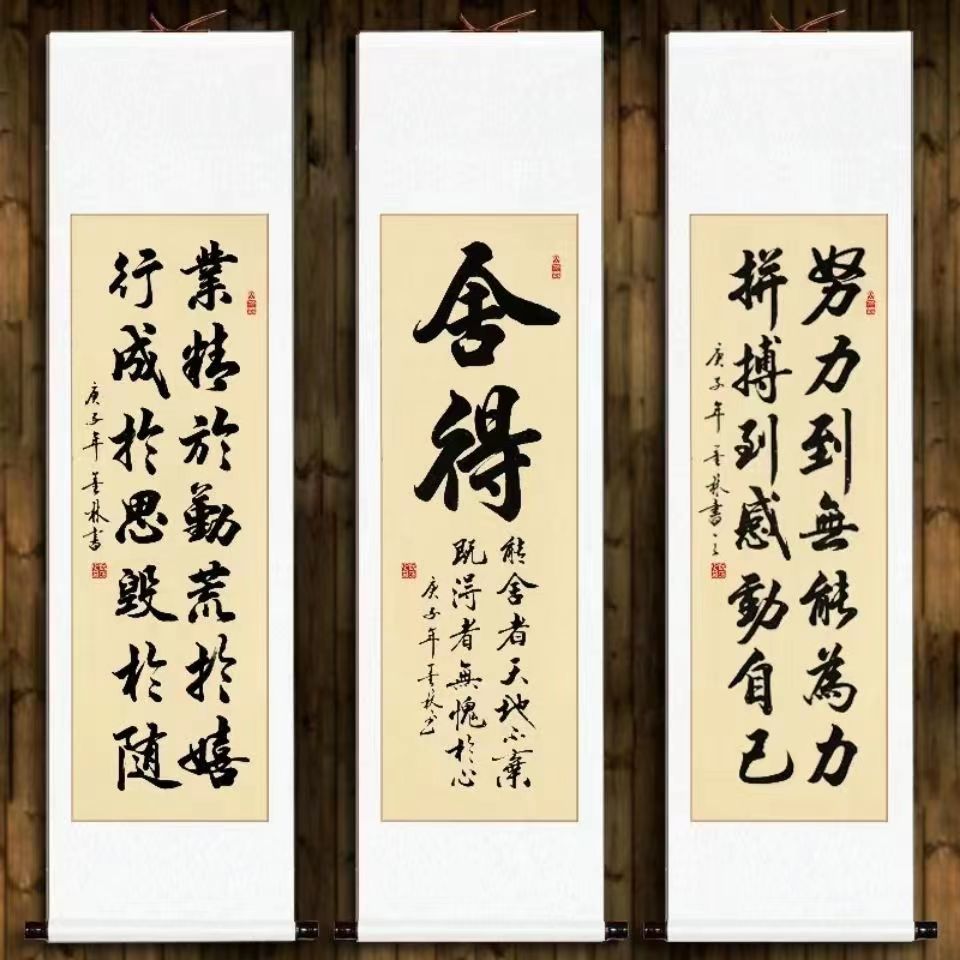 業精於勤荒於嬉
行成於思毀於随
庚子年
舍得
能舍者天地不棄
既得者無愧於心
庚子年
努力到無能為力
拼搏到感動自己
庚子年